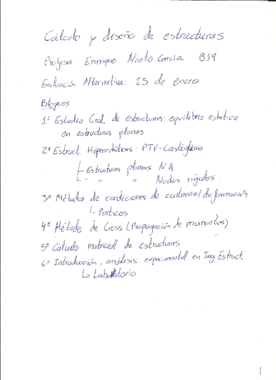 Cálculo y diseño de estructuras
Profesor: Enrique Nieto García B39
Evaluación Alternativa: 15 de enero
Bloques
1º Estudio Gral. de estructuras: equilibrio estático
en estructuras planas
2º Estruct. Hiperestáticas: PTV - Castigliano
- Estructuras planas N.A.
- " " Nudos rígidos.
3º Métodos de condiciones de contorno/deformación
- Pórticos
4º Método de Cross (Propagación de momentos)
5º Cálculo matricial de estructuras
6º Introducción, análisis experimental en Ing. Estruct.
Laboratorio